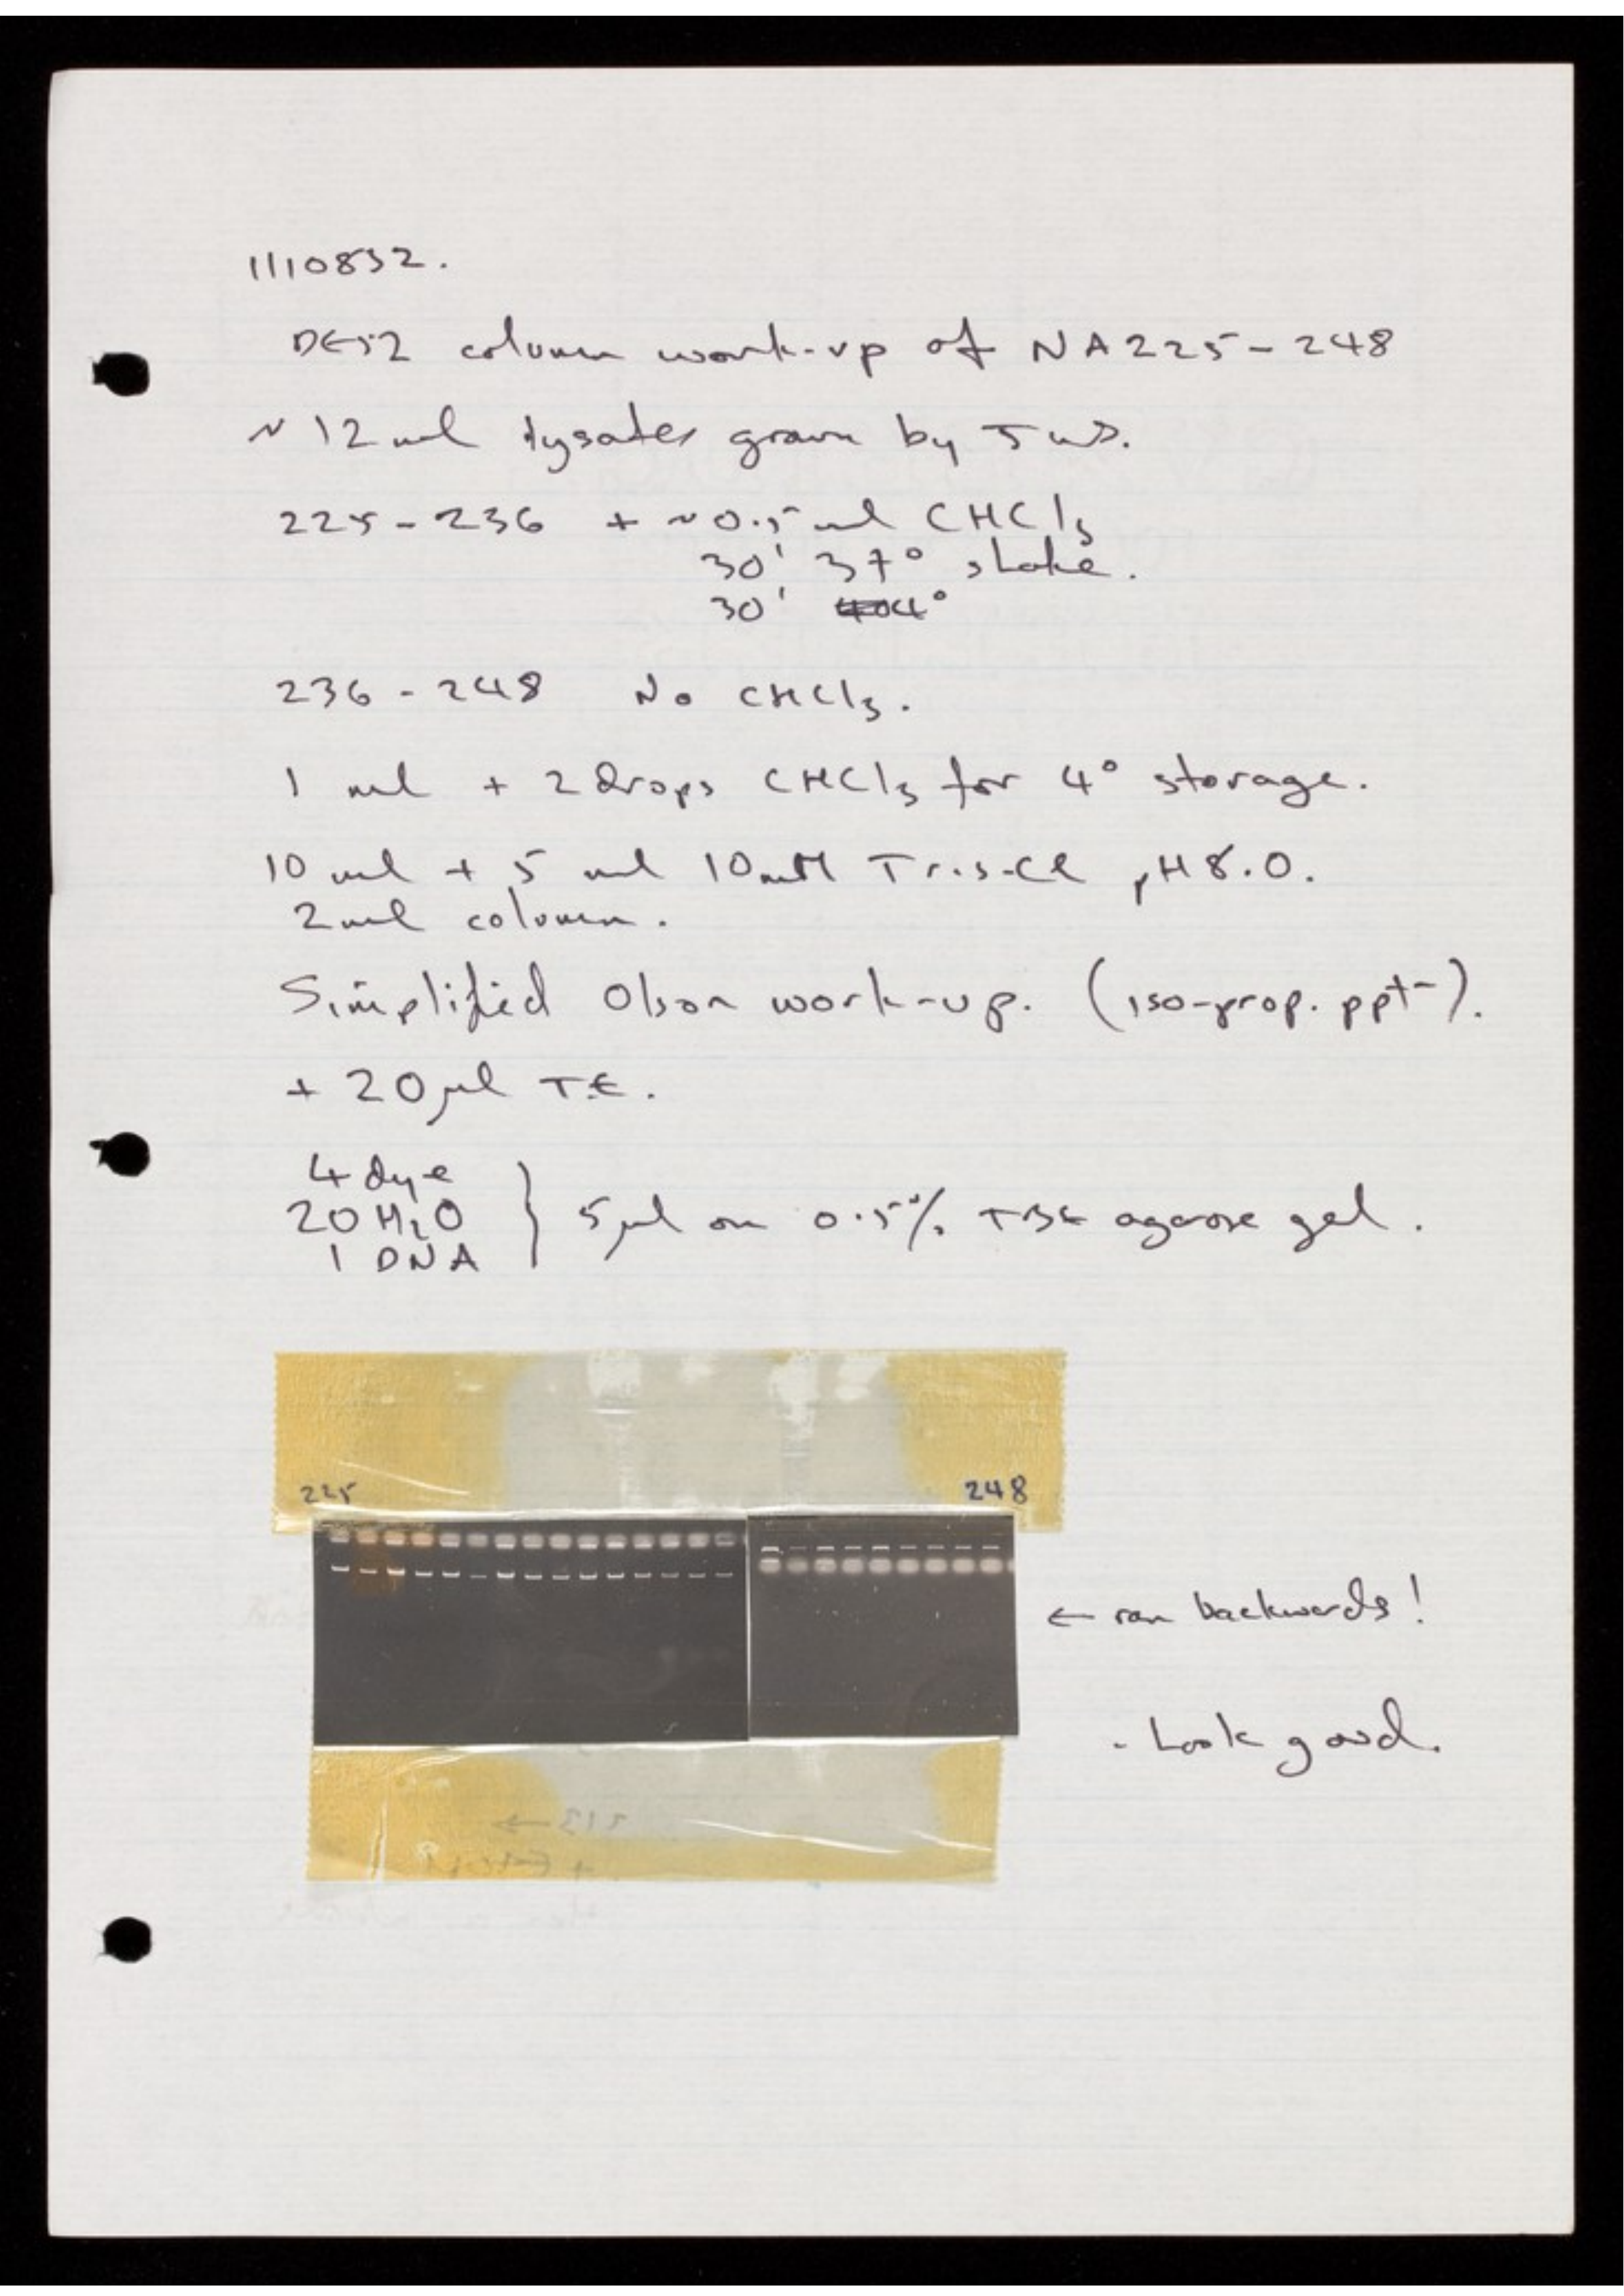 1110832.
DE52 column work-up of NA225-248
~12ml lysates grown by
225-236 + ~0.5 ml CHCl3
30' 37° shake.
30' 4°
236-248 No CHCl3.
1 ml + 2 drops CHCl3 for 4° storage.
10 ml + 5 ml 10mM Tris-Cl pH8.0.
2ml column.
Simplified Olson work-up. (iso-prop. ppt-).
+ 20µl T.E.
4 dye
20 H2O } 5µl on 0.5% TBE agarose gel.
1 DNA
225 248
← ran backwards!
- Look good.